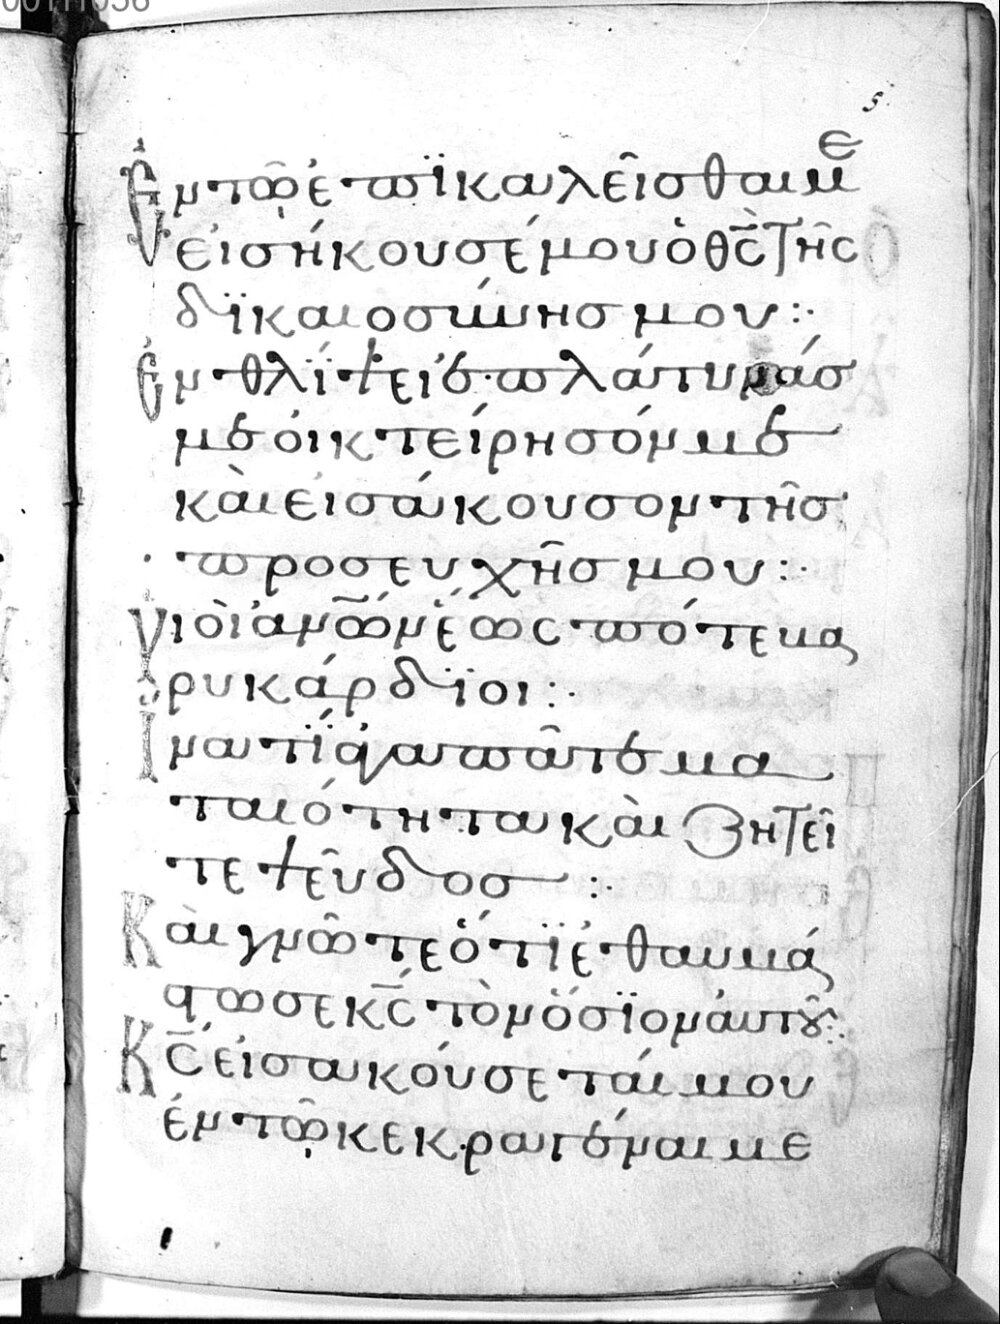 00111056
5
Ἐν τῶ ἐπϊκαλεῖσθαι με
εἰσήκουσέ μου ὁ θς τῆς
δϊκαιοσύνησ μου :·
Ἐν θλίψει ἐπλάτυνάσ
με οἰκτείρησόν με
καὶ εἰσάκουσον τῆσ
προσευχῆσ μου :·
Υἱοὶ ἀνων ἕως πότε βα
ρυκάρδϊοι :·
Ἱνατϊ ἀγαπᾶτε μα
ταιότητα καὶ ζητεῖ
τε ψεῦδοσ :·
Καὶ γνῶτε ὅτϊ ἐθαυμά
στωσε κς τὸν ὅσϊον ἀυτοῦ :·
Κς εἰσακούσεταί μου
ἐν τῶ κεκραγέναι με